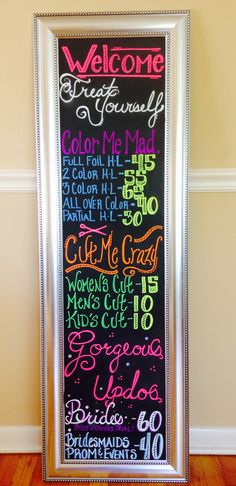 Welcome
Treat
Yourself
Color Me Mad.
Full Foil H·L - 45
2 Color H·L - 55
3 Color H·L - 65
All Over Color - 40
Partial H·L - 30
Cut Me Crazy
Women's Cut - 15
Men's Cut - 10
Kid's Cut - 10
Gorgeous
Updos
Brides - 60
Price includes trial!
Bridesmaids
Prom & Events - 40